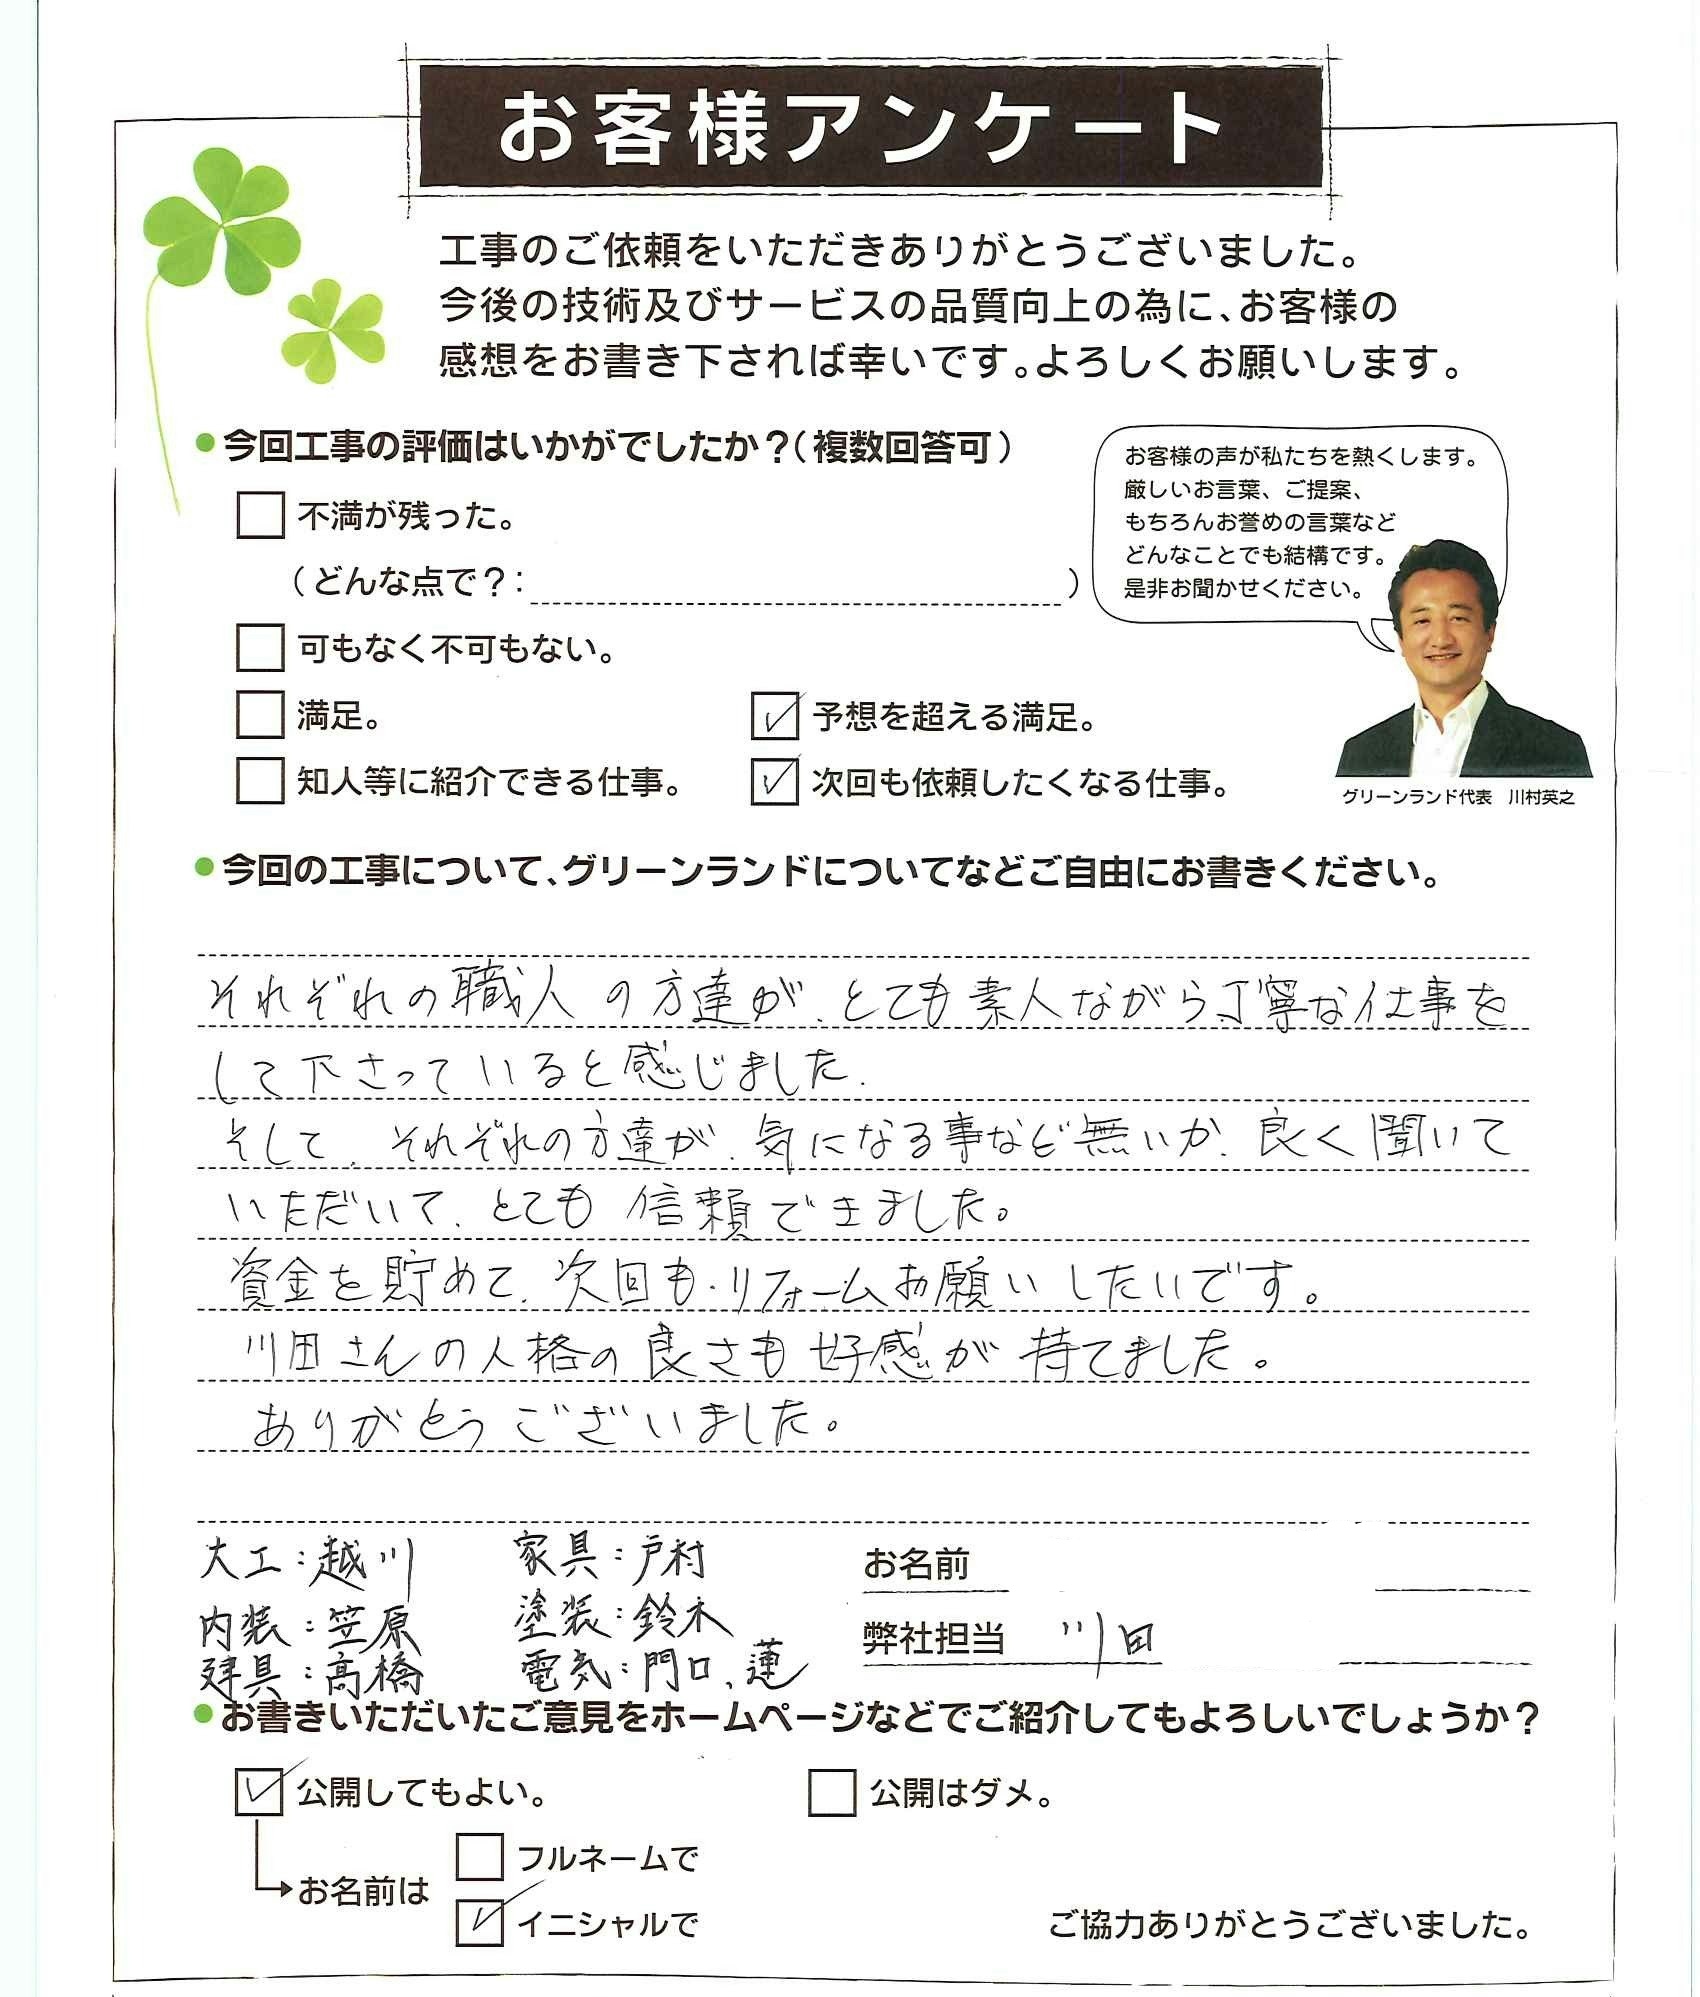 お客様アンケート
工事のご依頼をいただきありがとうございました。
今後の技術及びサービスの品質向上の為に、お客様の
感想をお書き下されば幸いです。よろしくお願いします。
●今回工事の評価はいかがでしたか？（複数回答可）
不満が残った。
（どんな点で？：　）
可もなく不可もない。
満足。
予想を超える満足。
知人等に紹介できる仕事。
次回も依頼したくなる仕事。
お客様の声が私たちを熱くします。
厳しいお言葉、ご提案、
もちろんお誉めの言葉など
どんなことでも結構です。
是非お聞かせください。
グリーンランド代表　川村英之
●今回の工事について、グリーンランドについてなどご自由にお書きください。
それぞれの職人の方達が、とても素人ながら丁寧な仕事を
して下さっていると感じました.
そして、それぞれの方達が、気になる事など無いか、良く聞いて
いただいて、とても信頼できました。
資金を貯めて、次回も・リフォームお願いしたいです。
川田さんの人格の良さも好感が持てました。
ありがとうございました。
大工：越川　家具：戸村
内装：笠原　塗装：鈴木
建具：高橋　電気：門口、蓮
お名前
弊社担当　川田
●お書きいただいたご意見をホームページなどでご紹介してもよろしいでしょうか？
公開してもよい。
公開はダメ。
お名前は
フルネームで
イニシャルで
ご協力ありがとうございました。